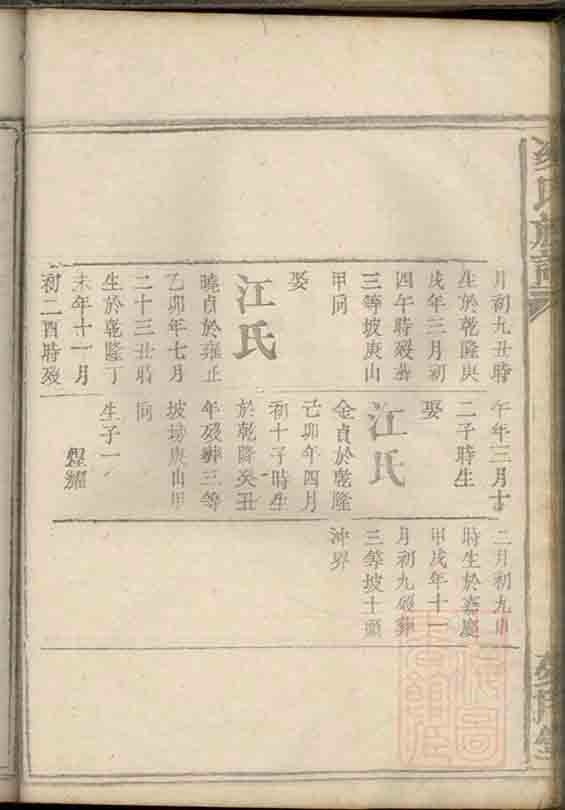 月初九丑時
生於乾隆庚
戌年三月初
四午時殁葬
三等坡庚山
甲向
娶
江氏
曉貞於雍正
乙卯年七月
二十三丑時
生於乾隆丁
未年十一月
初二酉時殁
午年三月十
二子時生
娶
江氏
金貞於乾隆
己卯年四月
初十子時生
於乾隆癸丑
年殁葬三等
坡塝庚山甲
向
生子一
煋耀
二月初九申
時生於嘉慶
甲戌年十一
月初九殁葬
三等坡土頭
沖界
氏族譜